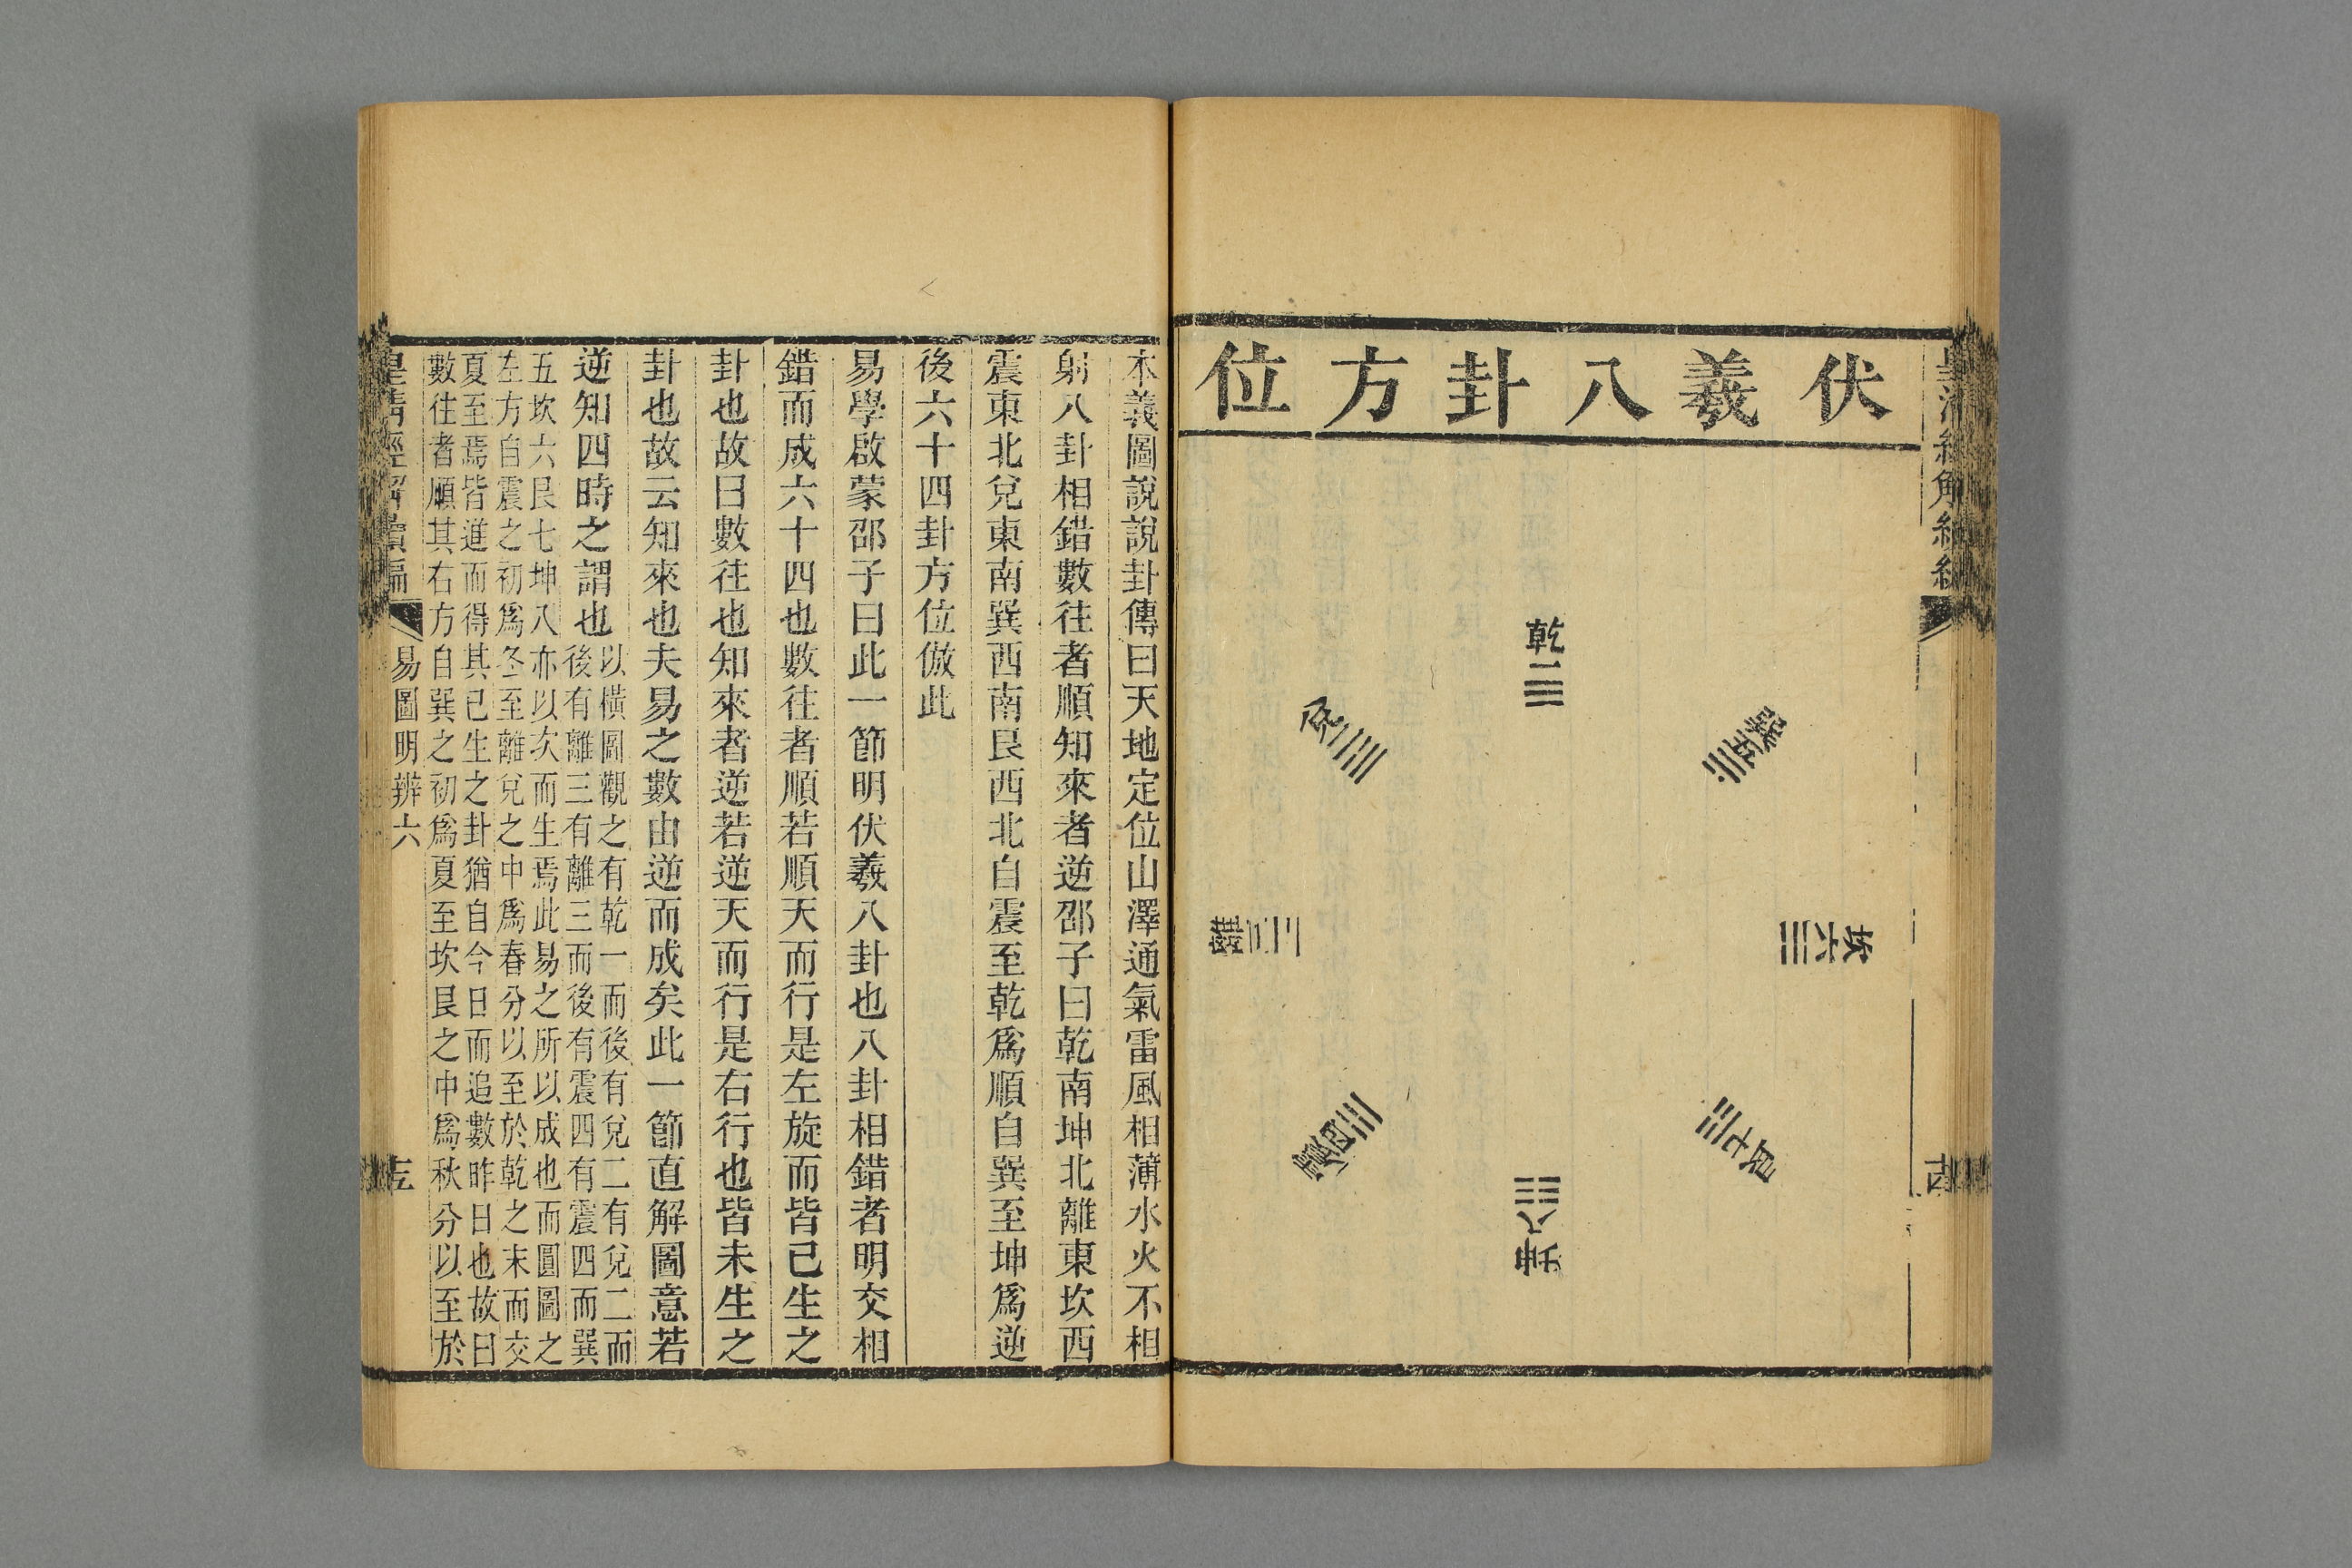 伏羲八卦方位
乾一
兌二
離三
震四
巽五
坎六
艮七
坤八
本義圖說說卦傳曰天地定位山澤通氣雷風相薄水火不相
射八卦相錯數往者順知來者逆邵子曰乾南坤北離東坎西
震東北兌東南巽西南艮西北自震至乾爲順自巽至坤爲逆
後六十四卦方位倣此
易學啟蒙邵子曰此一節明伏羲八卦也八卦相錯者明交相
錯而成六十四也數往者順若順天而行是左旋而皆已生之
卦也故曰數往也知來者逆若逆天而行是右行也皆未生之
卦也故云知來也夫易之數由逆而成矣此一節直解圖意若
逆知四時之謂也
以橫圖觀之有乾一而後有兌二有兌二而
後有離三有離三而後有震四有震四而巽
五坎六艮七坤八亦以次而生焉此易之所以成也而圓圖之
左方自震之初爲冬至離兌之中爲春分以至於乾之末而交
夏至焉皆進而得其已生之卦猶自今日而追數昨日也故曰
數往者順其右方自巽之初爲夏至坎艮之中爲秋分以至於
皇清經解續編
易圖明辨六